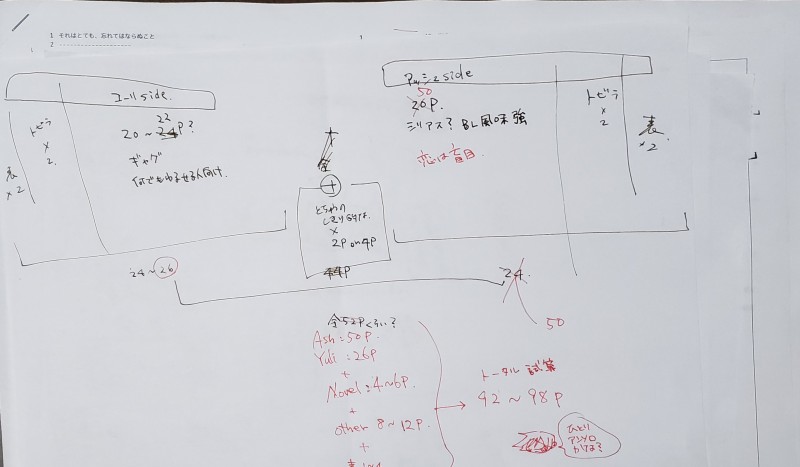 1 それはとても、忘れてはならぬこと
2
1
ユーリside.
トビラ
×
2
表
×2
22
20～24P?
ギャグ
何でもゆるせる人向け.
+
×
2P or 4P
44P
24～26
アッシュside
50
20P.
シリアス? BL風味強
恋は盲目
トビラ
×
2
表
×2
24.
50
全52Pくらい?
Ash:50P.
Yuli:26P
+
Novel:4~6P.
+
other 8~12P.
+
トータル試算
92～98P
ひとり
アンソロ
かては?